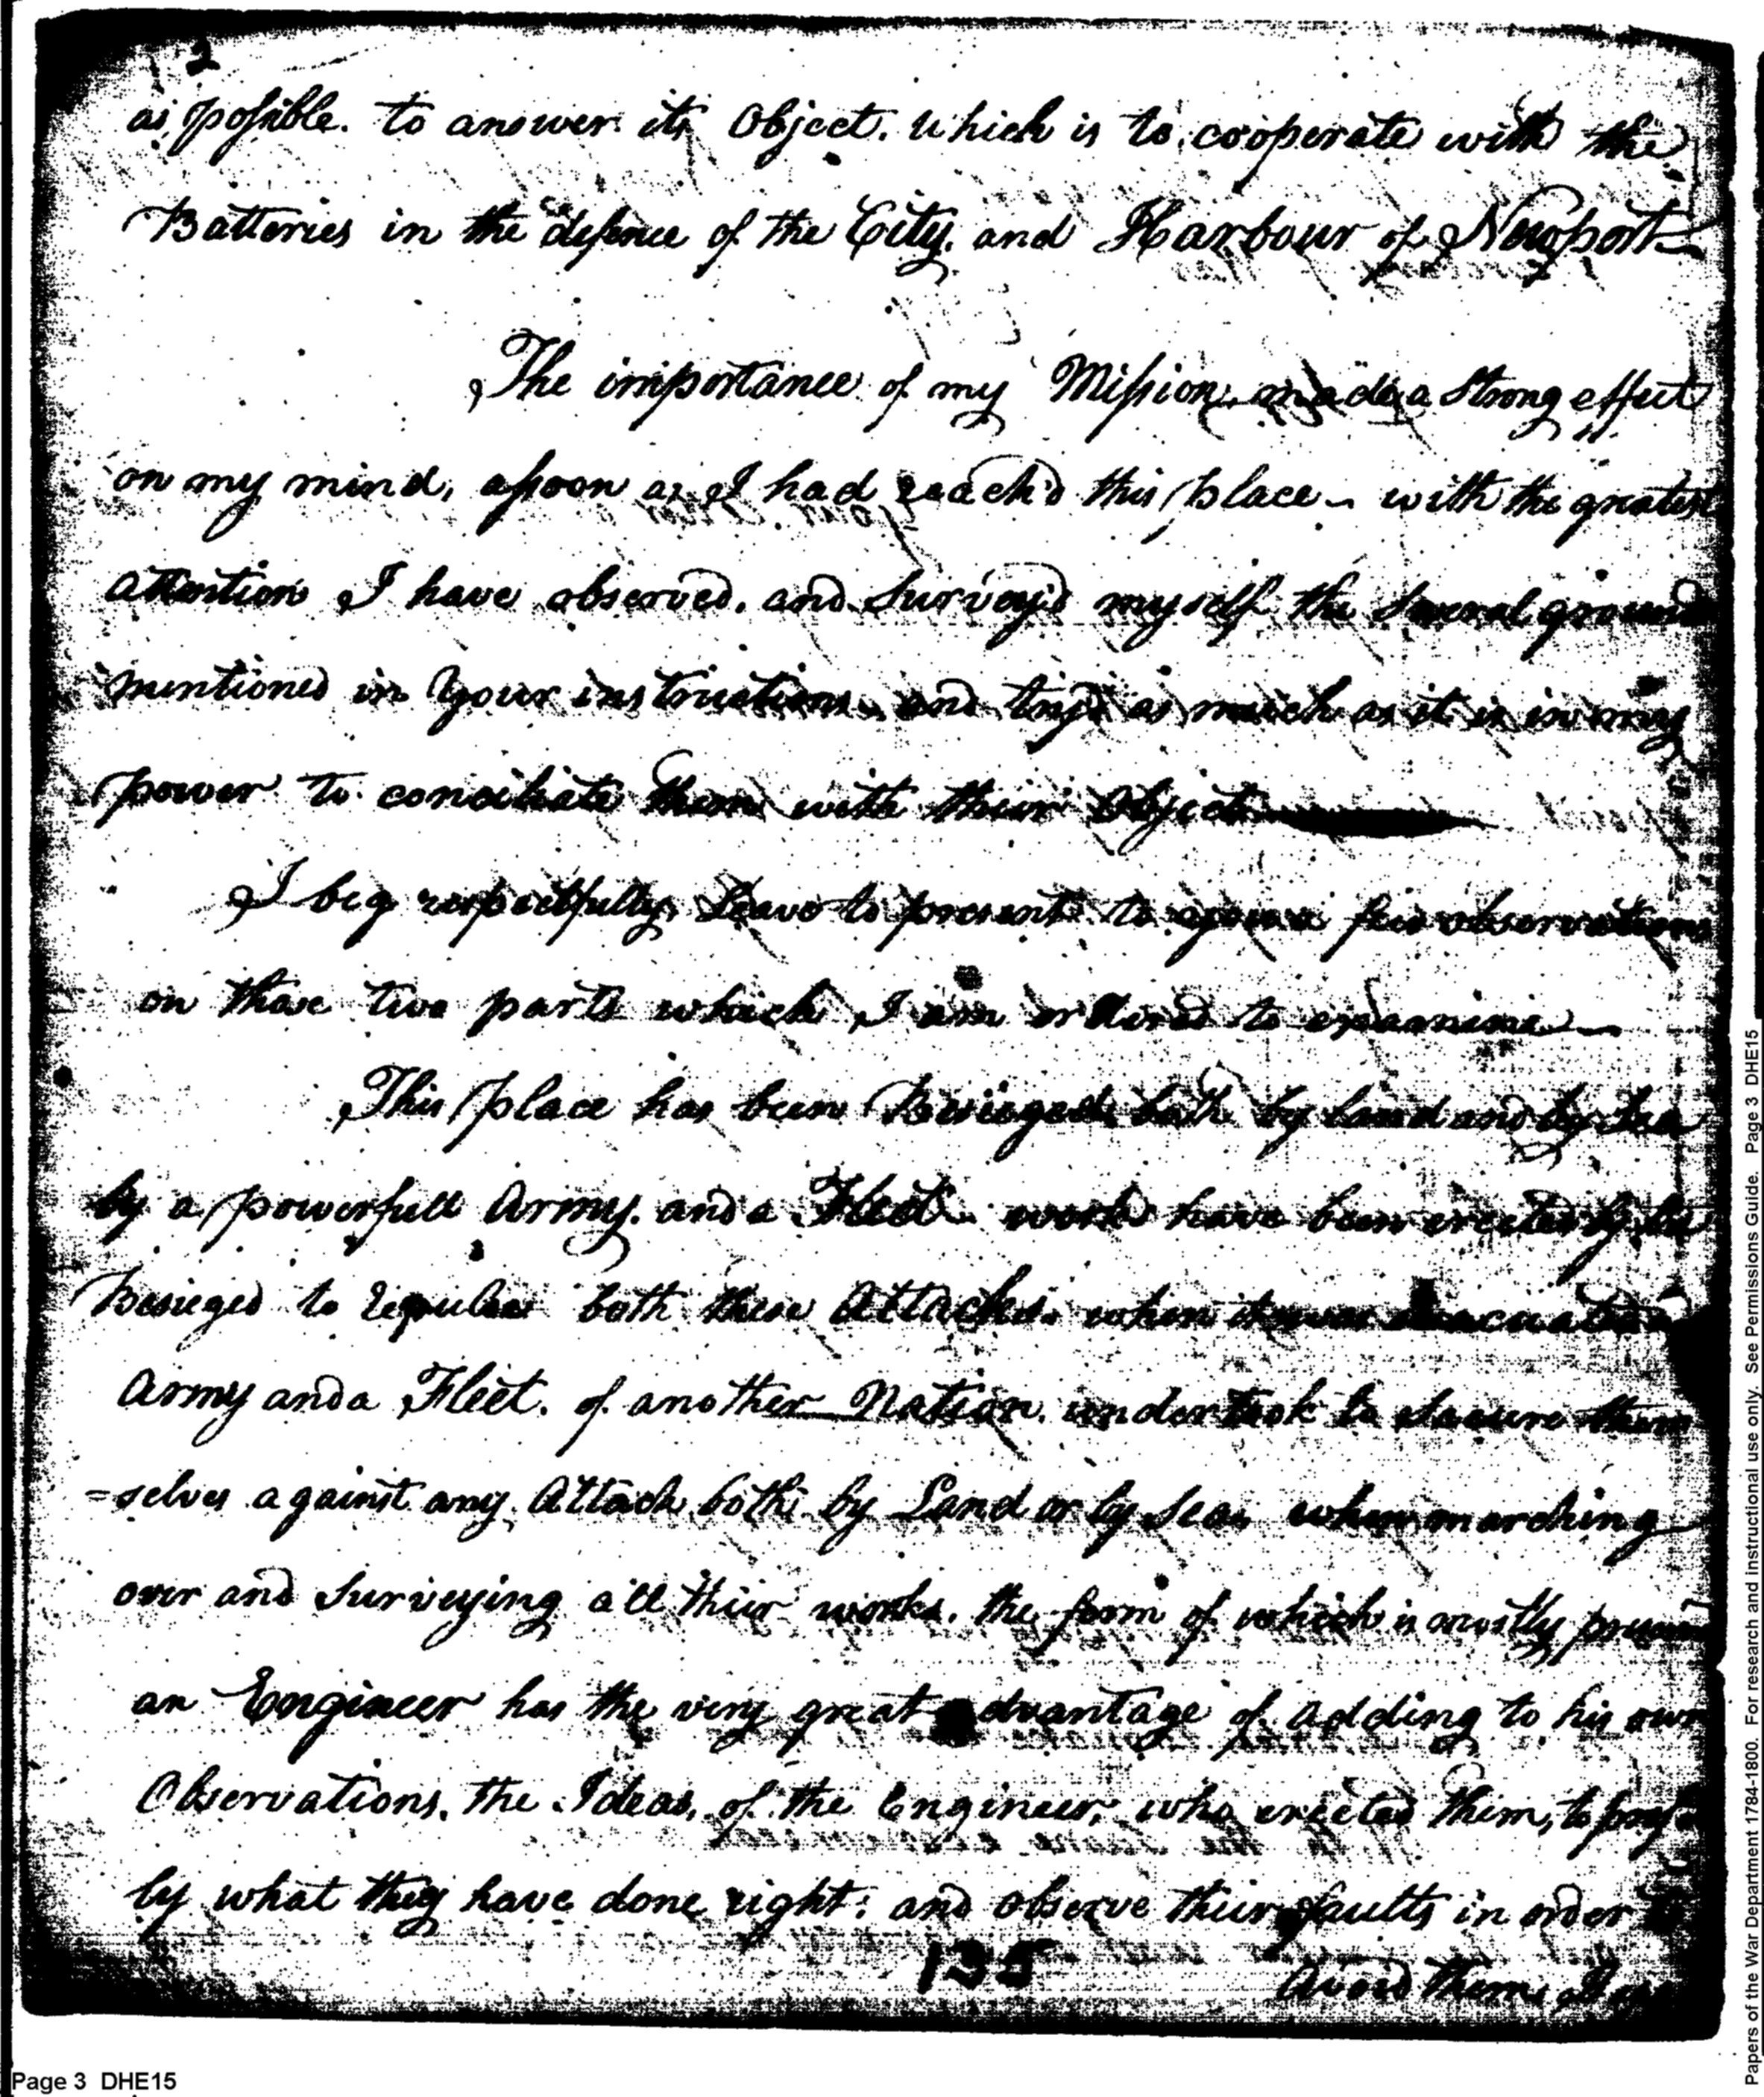 2
as possible. to answer its Object. which is to cooperate with the
Batteries in the defence of the City. and Harbour of Newport
The importance of my Mission, made a strong effect
on my mind, assoon as I had reach'd this place ~ with the greatest
attention I have observed, and Survey'd myself the several ground
mentioned in Your instructions ~ and try'd as much as it is in my
power to conciliate them with their Object
I beg respectfully Leave to present to you a few observations
on those two parts which I am ordered to examine
This place has been Besieged both by land and by Sea
by a powerfull Army. and a Fleet. work have been erected by the
Besieged to repulse both these Attacks. when it was evacuated
Army and a Fleet. of another Nation. undertook to secure them
=selves against any Attack both by Land or by Sea. when marching
over and Surveying all their works. the form of which is mostly
an Engineer has the very great advantage of adding to his own
Observations. the Ideas, of the Engineer, who erected them, to
by what they have done right: and observe their faults in order
135
avoid them. I
Page 3 DHE15
Papers of the War Department 1784-1800. For research and instructional use only. See Permissions Guide. Page 3 DHE15